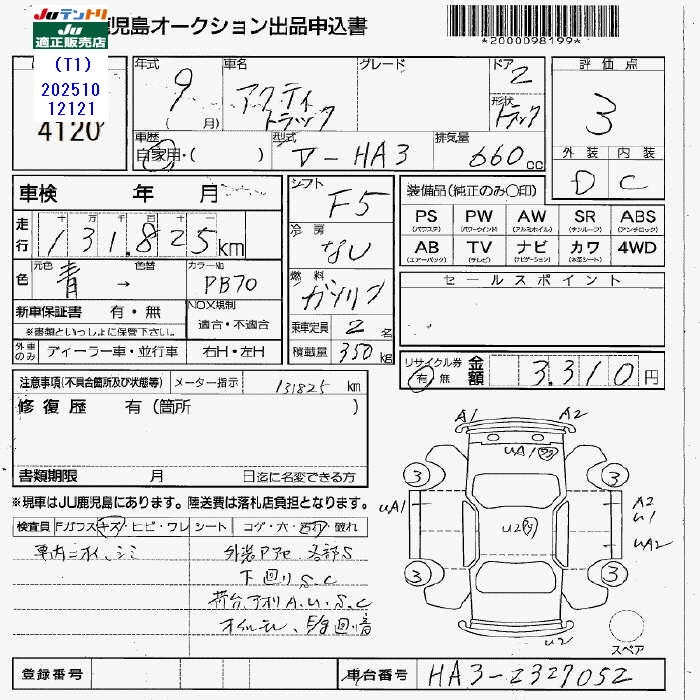 JUテントリ
JU
適正販売店
鹿児島オークション出品申込書
*2000098199*
(T1)
202510
12121
4120
年式 車名 グレード ドア
9 アクティ 2
(月) トラック
形状
トラック
評価点
3
外装 内装
D C
車歴 型式 排気量
自家用・( ) V-HA3 660cc
車検 年 月
走行 十 万 千 百 十 一
131,825km
元色 色替 カラーNo
色 青 → PB70
新車保証書 有・無
※書類といっしょに保管下さい。
NOX規制
適合・不適合
外車のみ ディーラー車・並行車 右H・左H
シフト
F5
冷房
なし
燃料
ガソリン
乗車定員 2名
積載量 350kg
装備品(純正のみ○印)
PS PW AW SR ABS
(パワステ) (パワーウインド) (アルミホイル) (サンルーフ) (アンチロック)
AB TV ナビ カワ 4WD
(エアーバック) (テレビ) (ナビゲーション) (本革シート)
セールスポイント
リサイクル券 金額
有 無 3,310円
注意事項(不具合箇所及び状態等) メーター指示 131825 km
修復歴 有(箇所 )
書類期限 月 日迄に名変できる方
※現車はJU鹿児島にあります。陸送費は落札店負担となります。
検査員 Fガラス キズ・ヒビ・ワレ シート コゲ・穴・汚れ・破れ
車内ニオイ、シミ 外装Pアセ 各部S
下回りS、C
荷台、アオリA.U.S.C
A1 A2
UA1
3 3
UA1 A2
U1
U2
UA2
3 3
U2
スペア
登録番号 車台番号 HA3-2327052